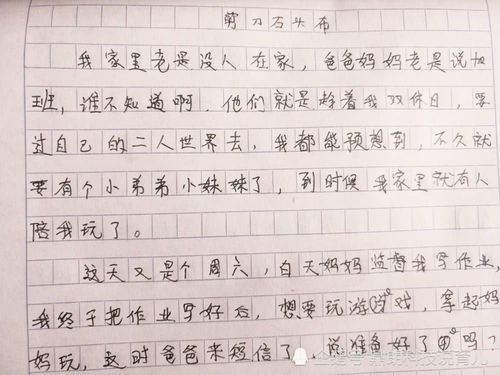 剪刀石头布
我家里老是没人在家，爸爸妈妈老是说加
班，谁不知道啊，他们就是趁着我双休日，要
过自己的二人世界去，我都能预想到，不久就
要有个小弟弟小妹妹了，到时候我家里就有人
陪我玩了。
这天又是个周六，白天妈妈监督我写作业，
我终于把作业写好后，想要玩游戏，拿起妈
妈玩，这时爸爸来短信了，说准备好了吗？